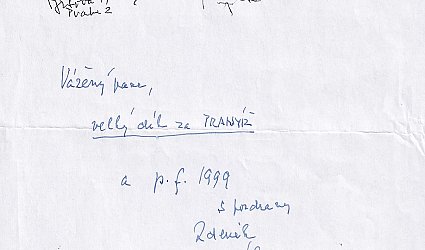 Praha 2
Vážený pane,
velký dík za TRANYIŽ
a p.f. 1999
s pozdravy
Zdeněk